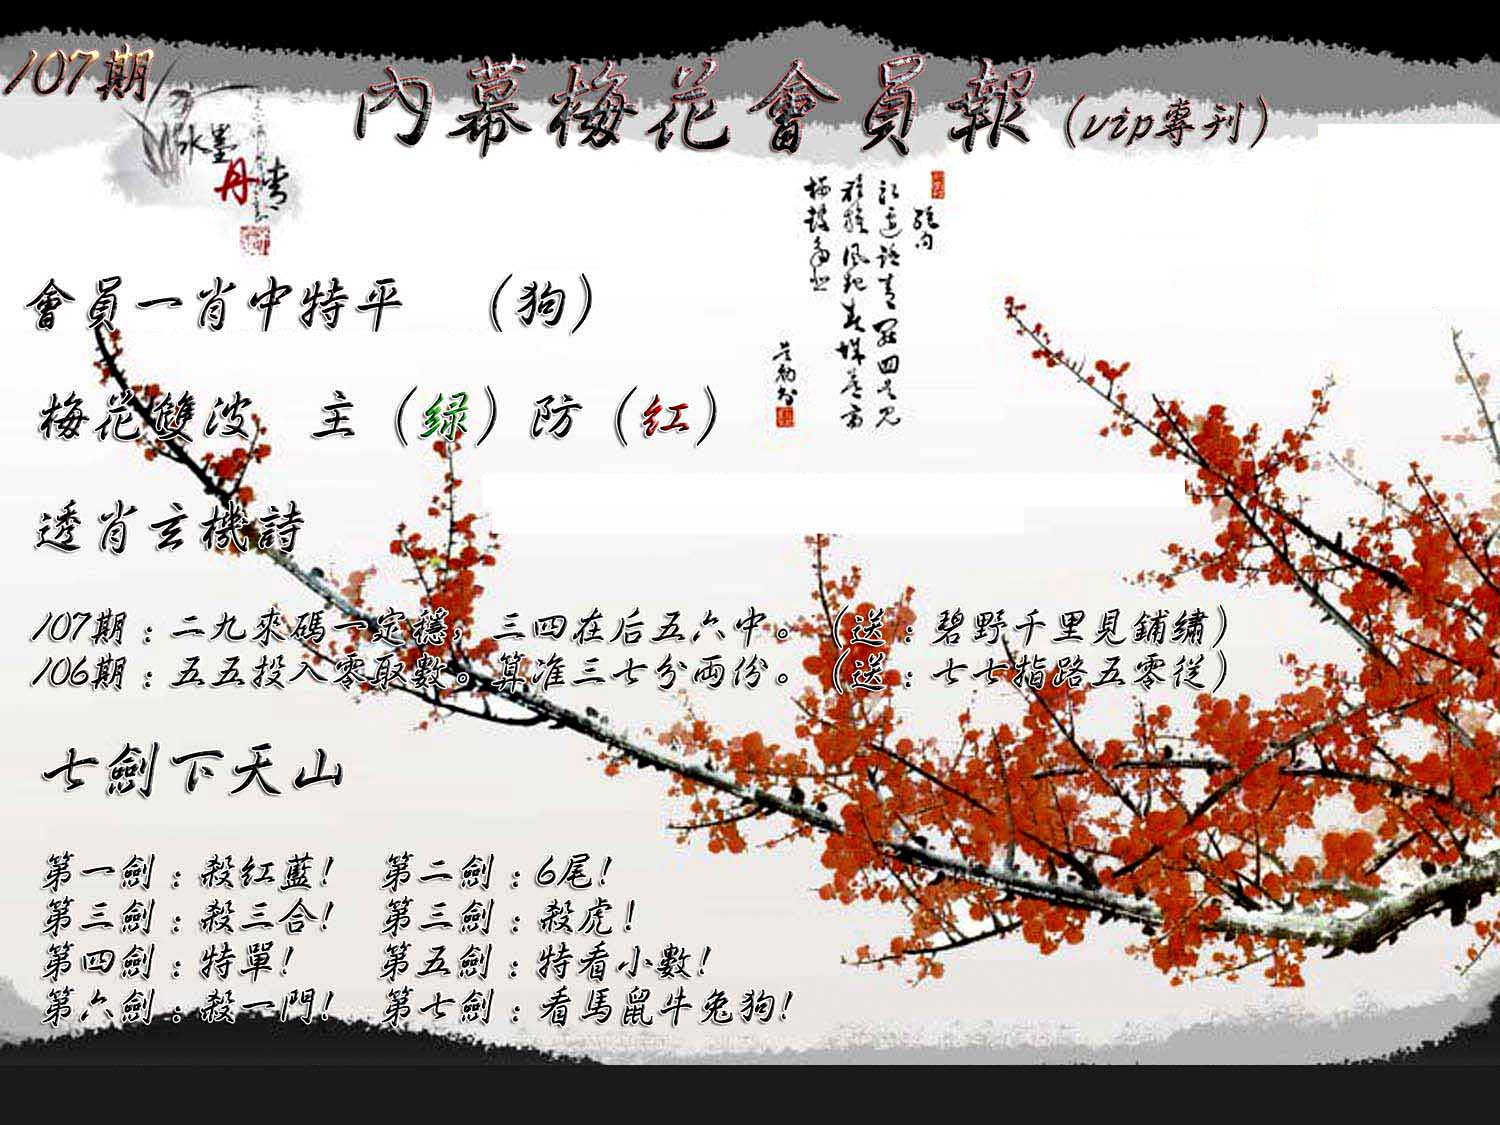 107期
內幕梅花會員報（vip專刊）
水墨
丹青
會員一肖中特平　（狗）
梅花雙波　主（绿）防（红）
透肖玄機詩
107期：二九來碼一定穩，三四在后五六中。（送：碧野千里見鋪繡）
106期：五五投入零取數。算准三七分兩份。（送：七七指路五零從）
七劍下天山
第一劍：殺红藍！　第二劍：6尾！
第三劍：殺三合！　第三劍：殺虎！
第四劍：特單！　第五劍：特看小數！
第六劍：殺一門！　第七劍：看馬鼠牛兔狗！